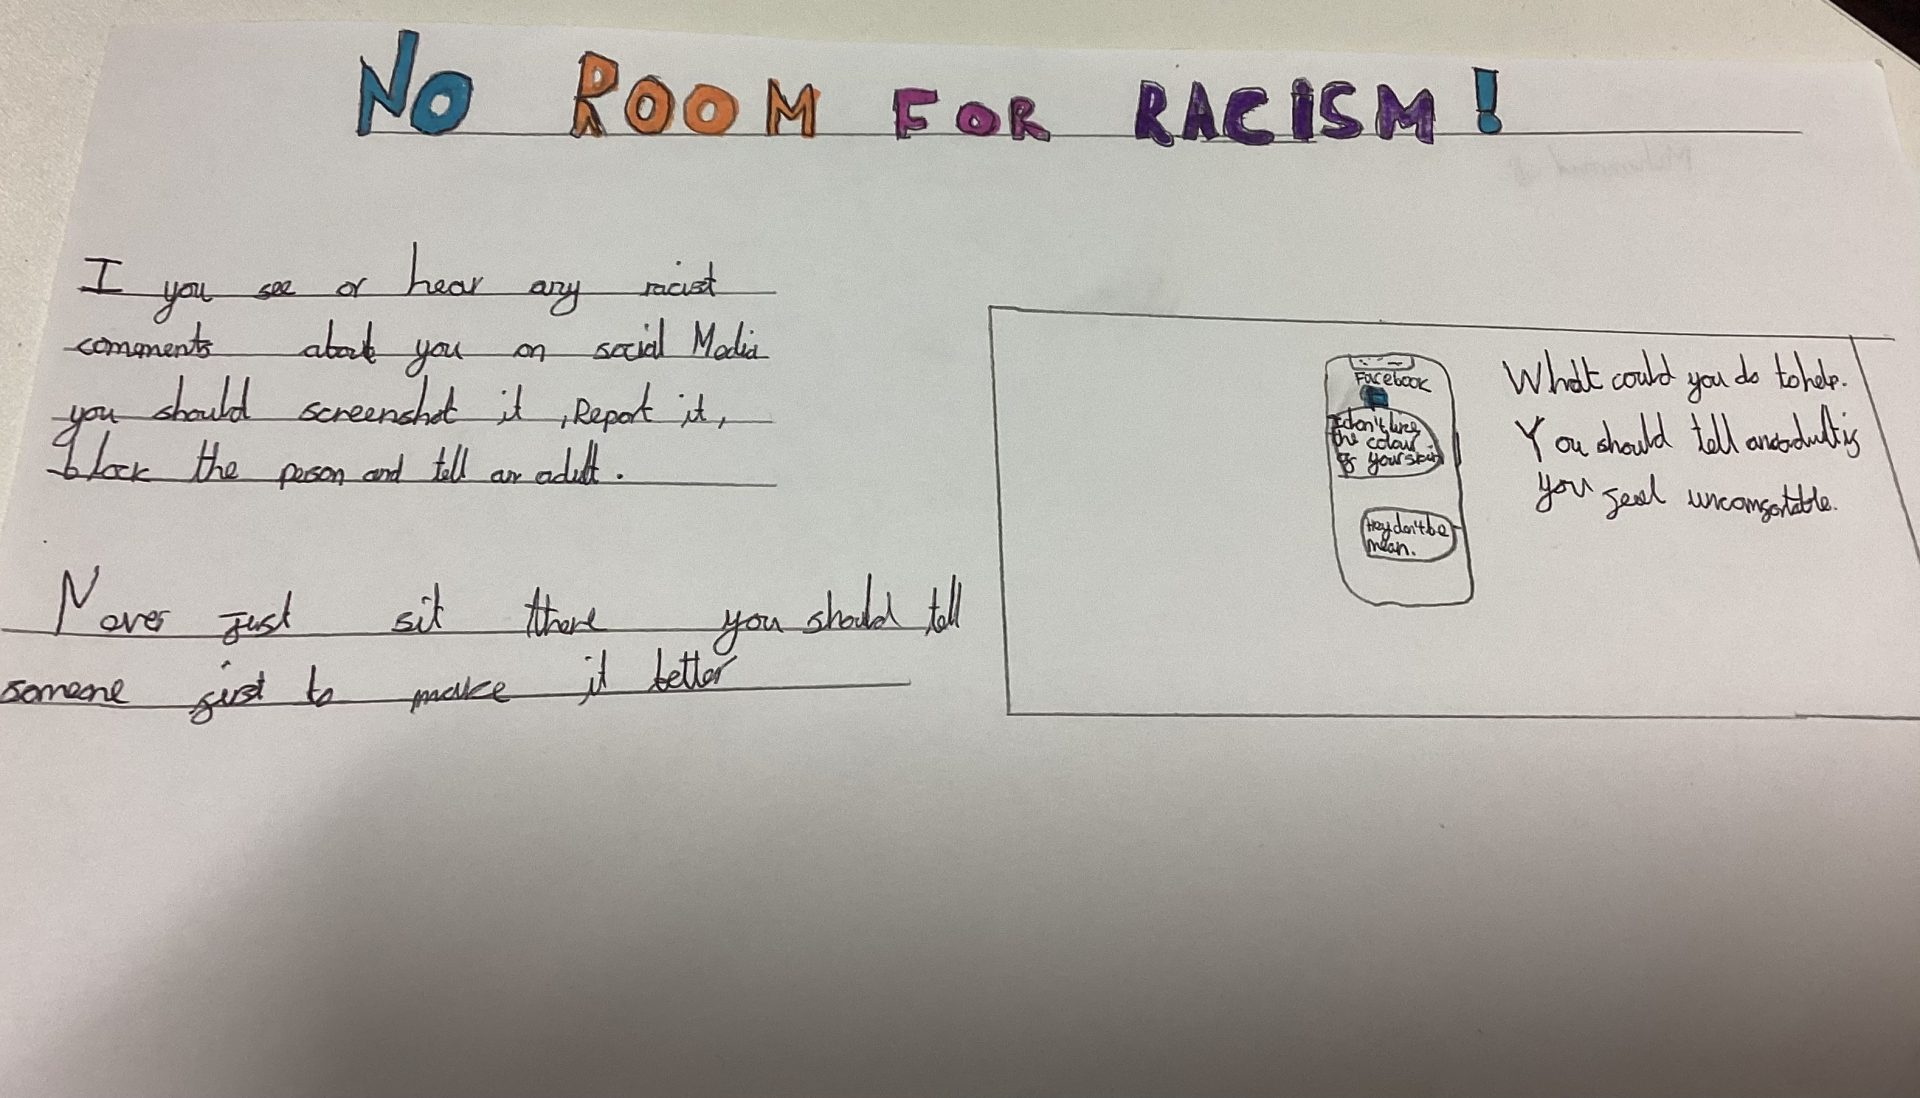 NO ROOM FOR RACISM!
I you see or hear any racist
comments about you on social Media
you should screenshot it, Report it,
block the person and tell an adult.
Never just sit there you should tell
someone just to make it better
Facebook
I don't like
the colour
of your skin
Hey don't be
mean.
What could you do to help.
You should tell an adult if
you feel uncomfortable.